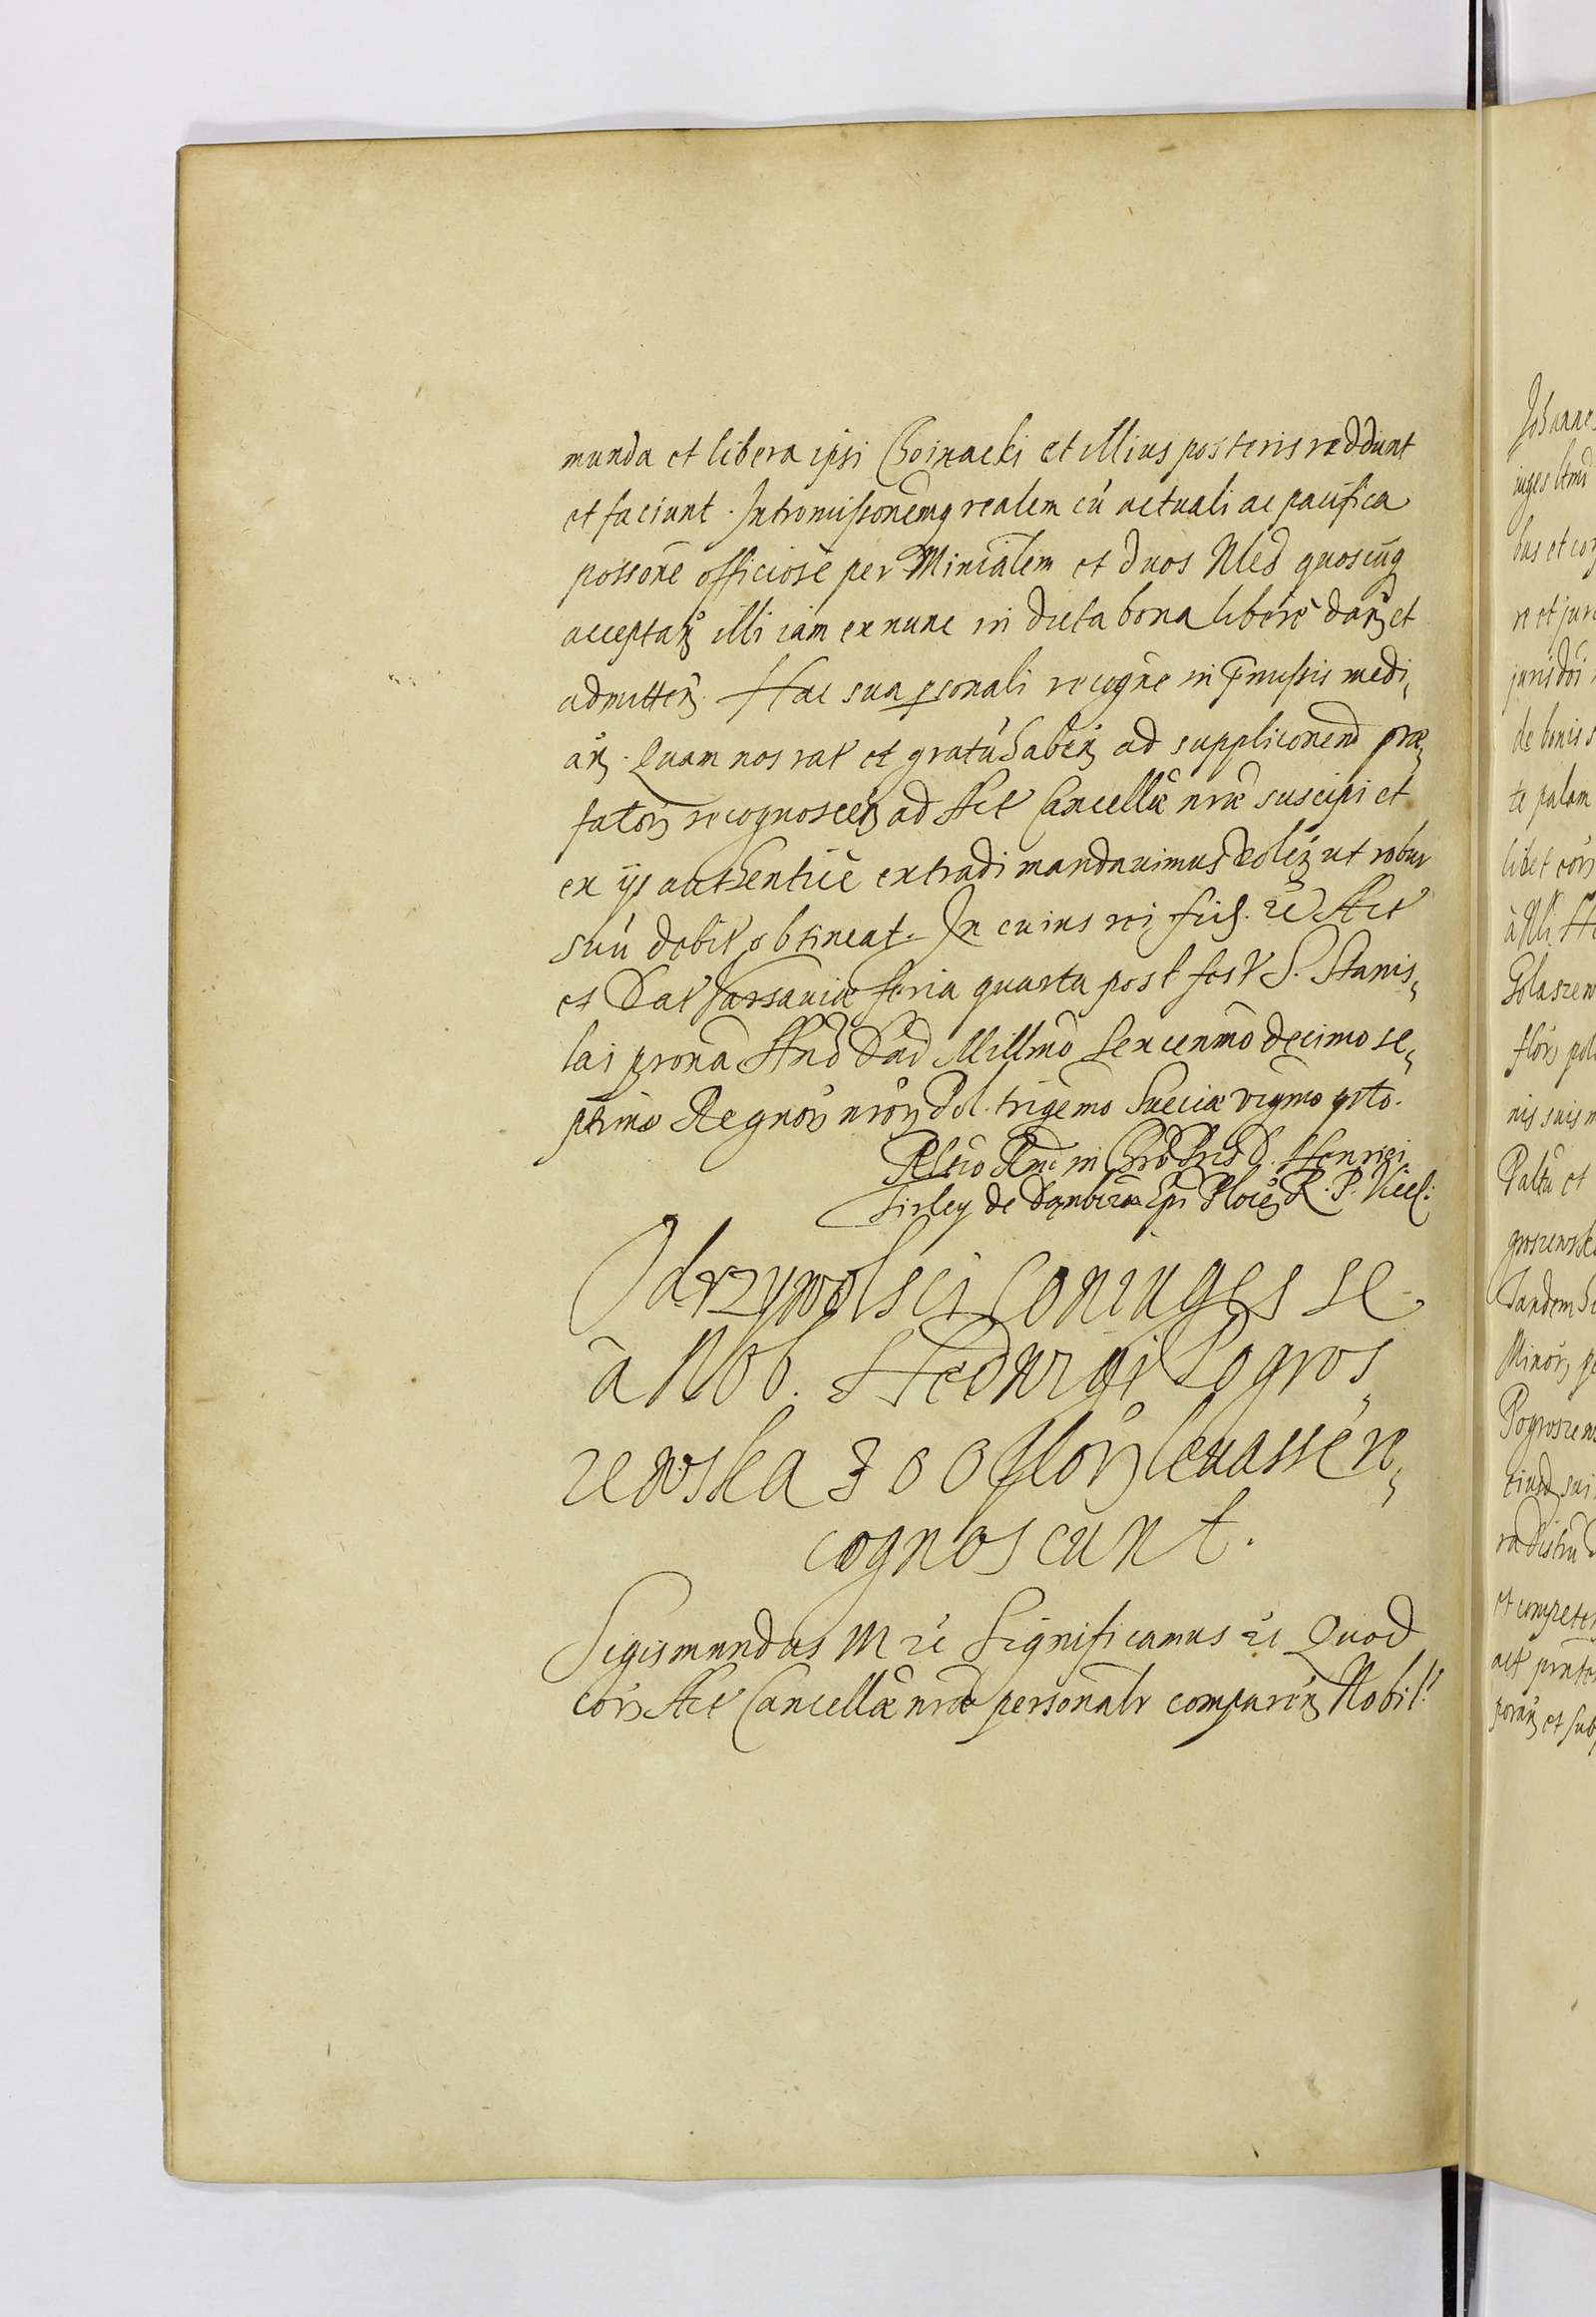 munda et libera ipsi Choinacki et illius posteris reddunt
et faciunt. Intromissionemq realem cū actuali ac pacifica
possone officiose per Minialem et duos Nles quoscūq
acceptan illi iam ex nunc in dicta bona libere dan et
admitten. Hac sua psonali recogne in pmissis medi,
an. Quam nos rat et gratū haben ad supplicõnem præ,
fatoꝝ recognoscen ad Act Cancellæ nræ suscipi et
ex ijs authentice extradi mandauimus volen ut robur
suū debit obtineat. In cuius rei fid. rc Act
et Dat Varsaviæ feria quarta post fest S. Stanis,
lai proxa Anō Dnī Millmo Sexcenmo decimo se,
ptimo Regnoꝝ nroꝝ Pol. trigemo Sueciæ vigmo qrto.
Relatio Rndi in Chro Pris D. Henrici
Firley de Dąbrowica Epi Plocen R. P. Vicel:
Odrzywolsci Coniuges se
à Nob. Hedwigi Pogros,
zewska 300 flor leuasse re,
cognoscunt.
Sigismundus III rc Significamus rc Quod
corꝝ Act Cancellæ nræ personalr comparen Nobil:
Johannes
iuges
bus et cor
re et jure
jurisdoi
de bonis s
te palam
libet corꝝ
à Nli He
Golaszew
flor pol
nis suis
Paltu et
groszewska
Tandem
Minoꝝ
Pogroszews
eiusd sui
et compete
act
et sub